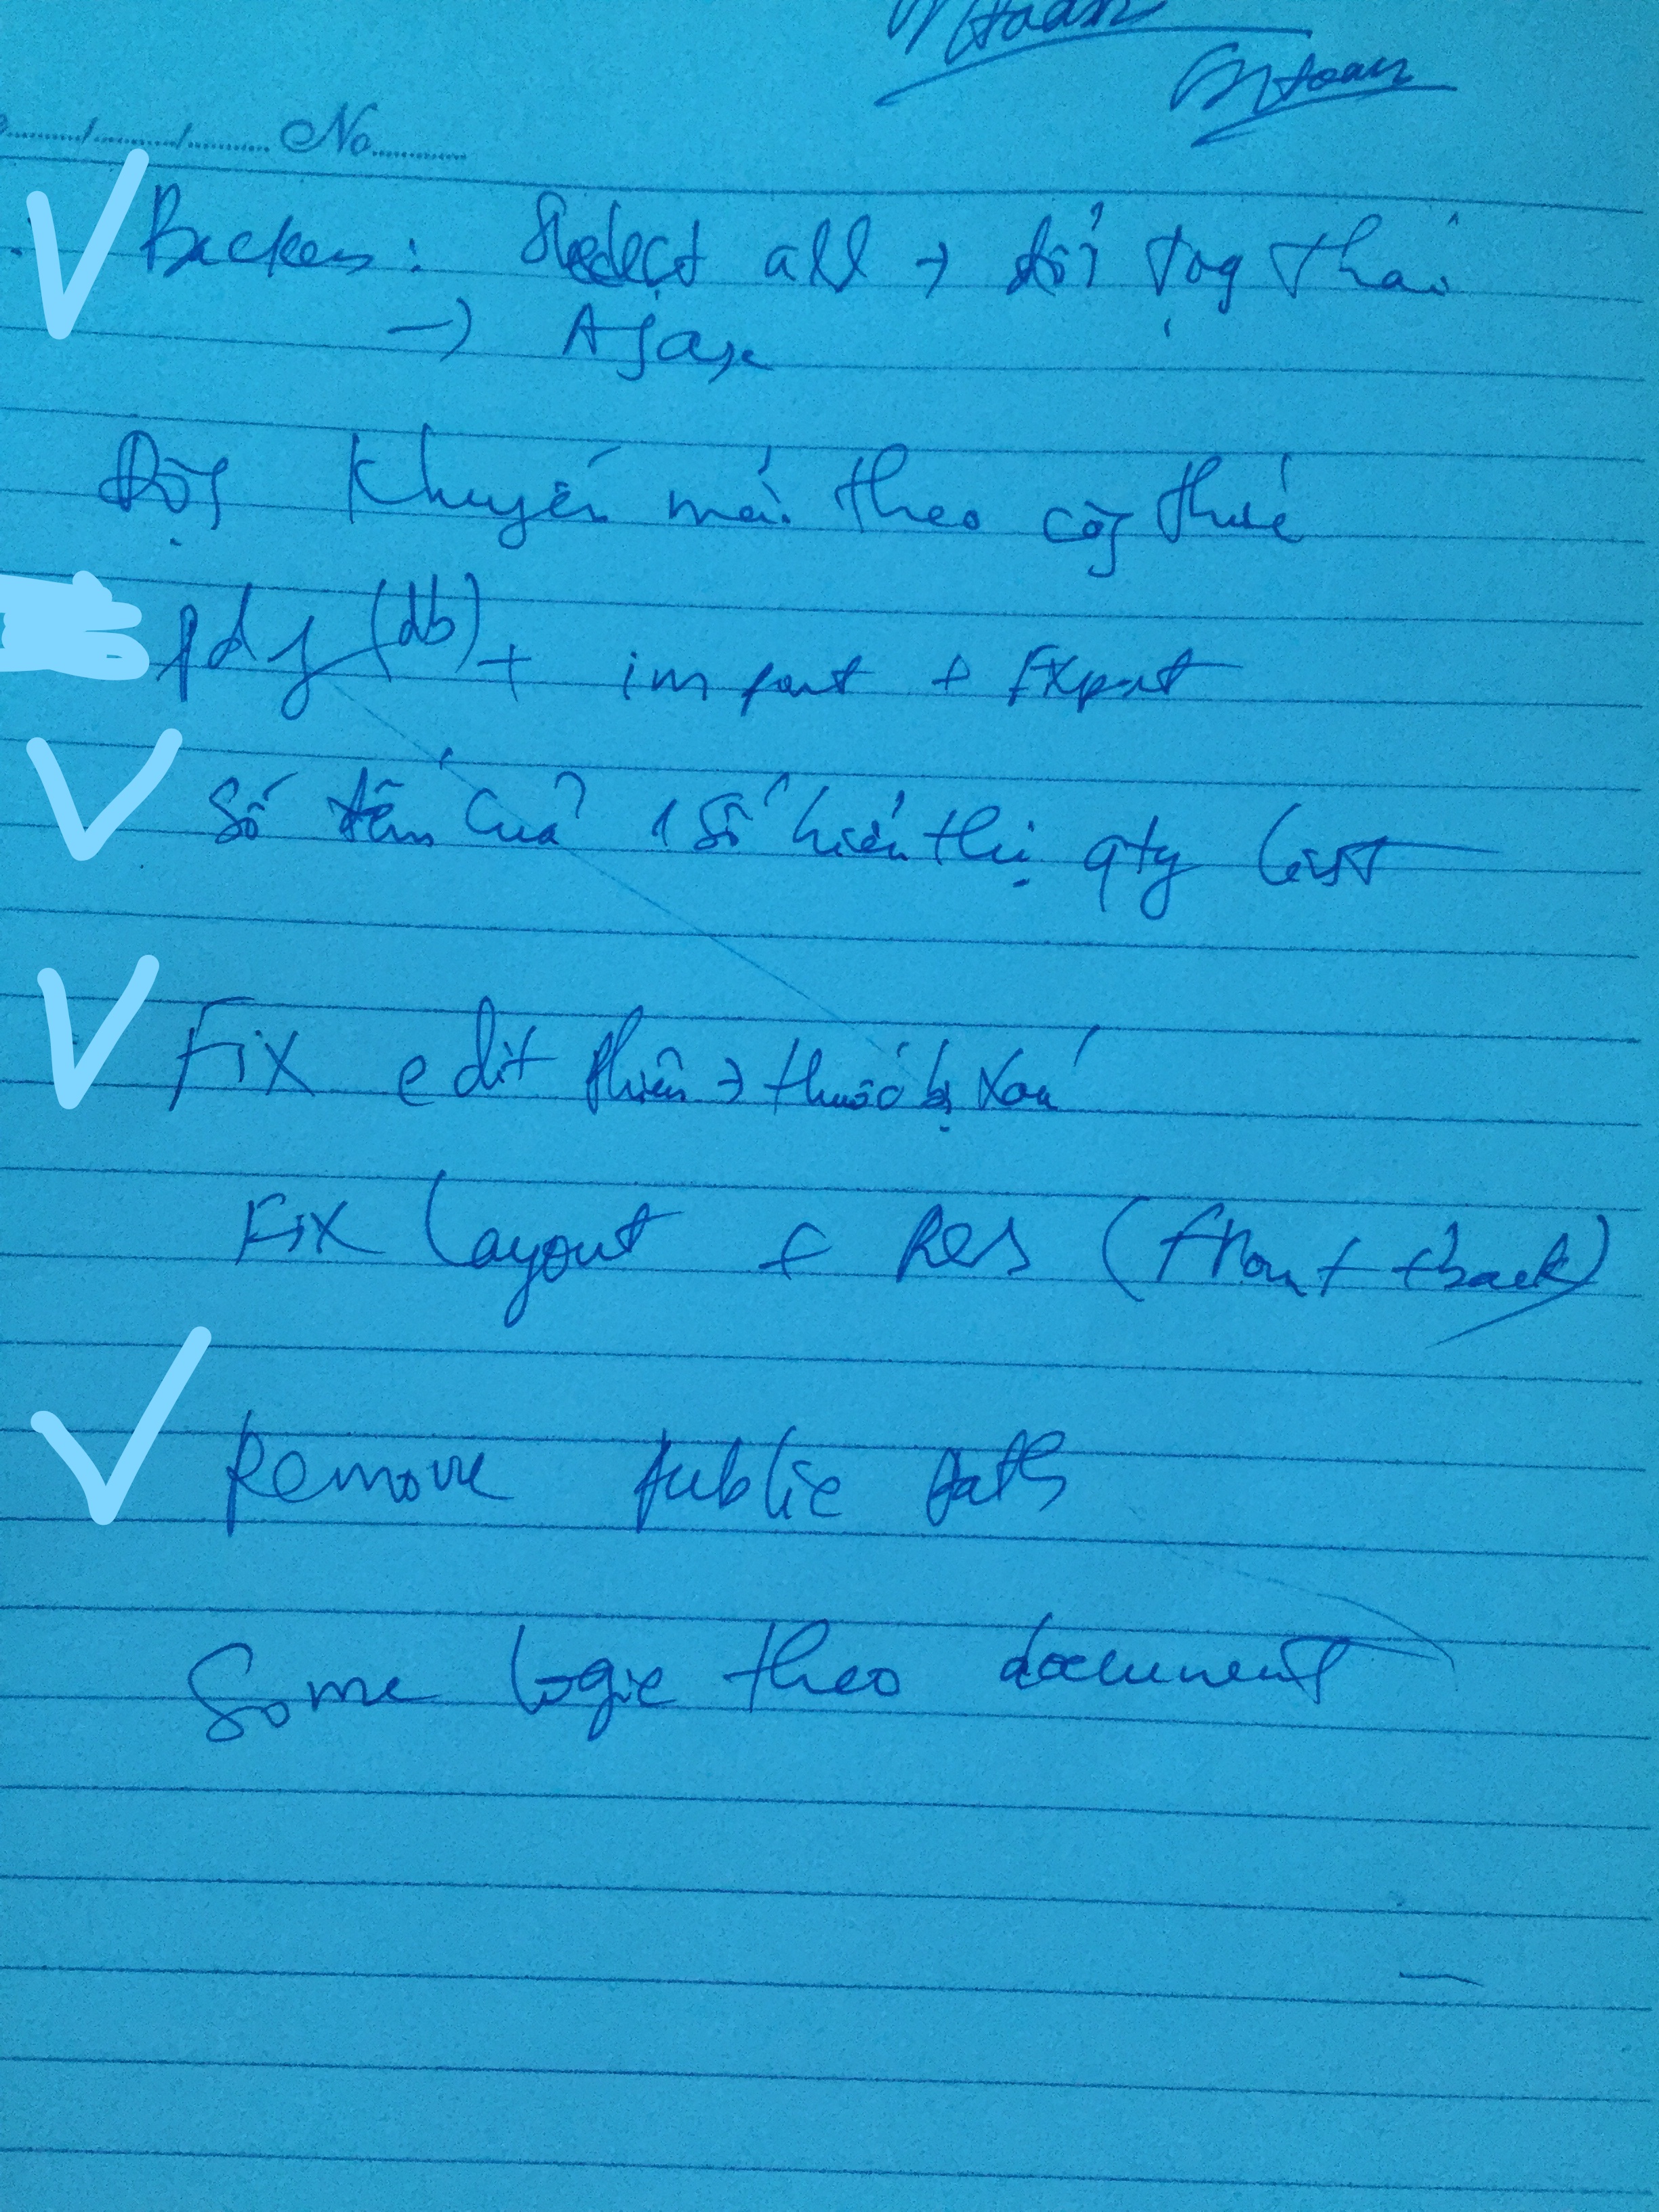 Mtoan
Mtoan
No
Backen: Select all → đổi trạg thái
→ Ajax
Độg khuyến mãi theo côg thức
pdf (db) + import + Export
Số đếm của 1 số hiển thị qty list
Fix edit phiên → thuốc bị xoá
Fix layout + Res (front + back)
Remove public path
Some logic theo document